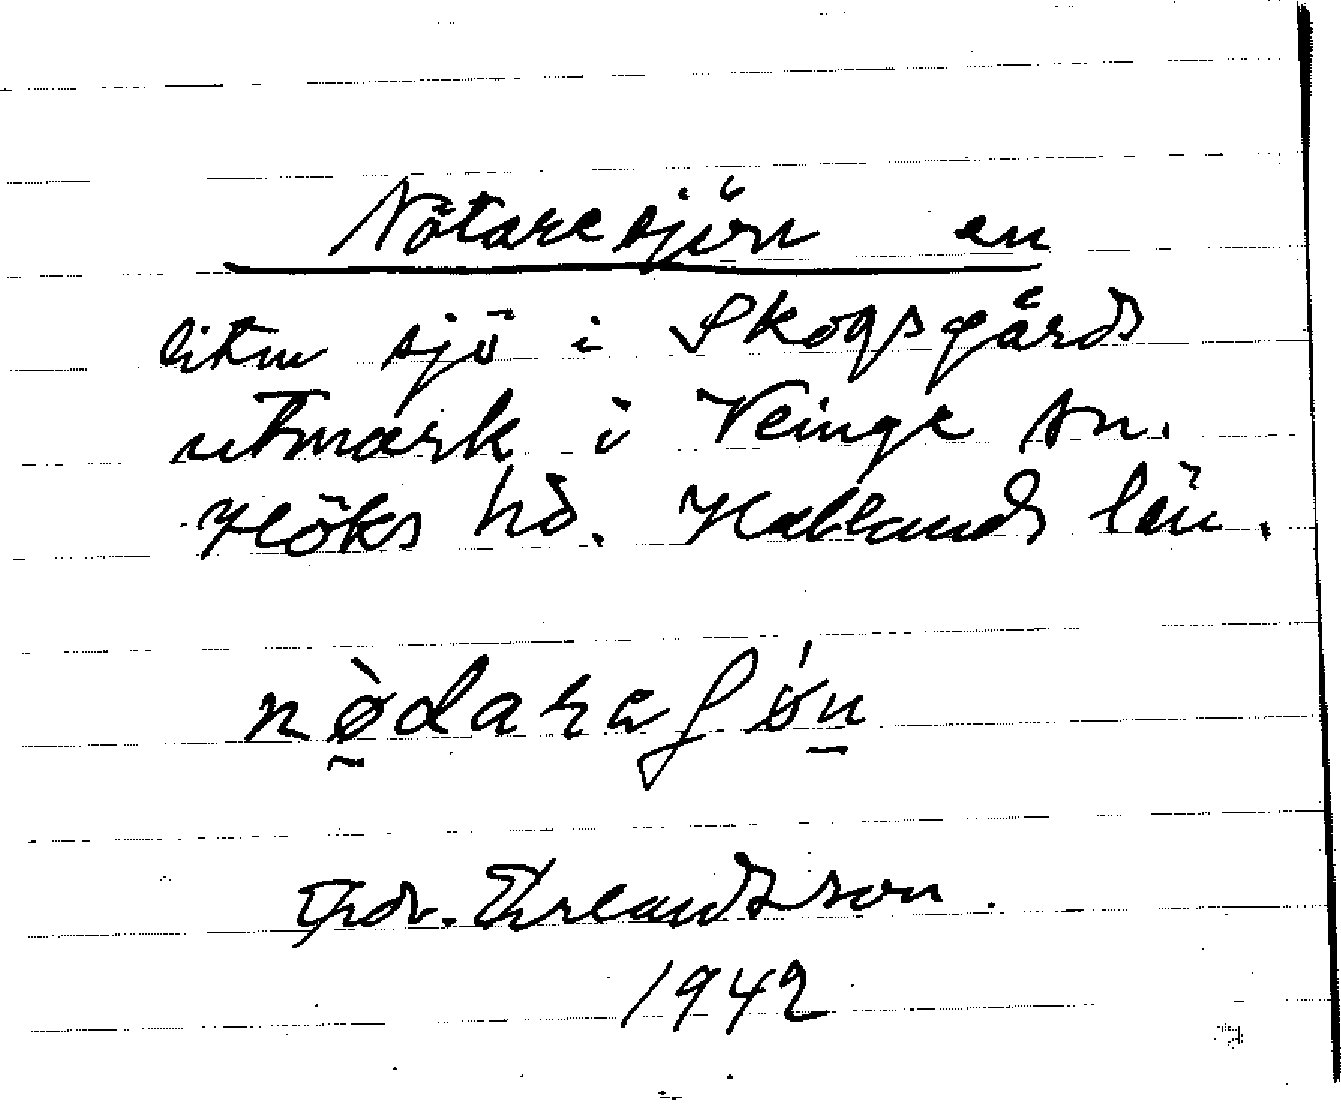 Nötaresjön en
liten sjö i Skogsgårds
utmark i Veinge sn.
Höks hd. Hallands län.
nø̀daraʃön
Thdr. Ehrlandsson.
1942